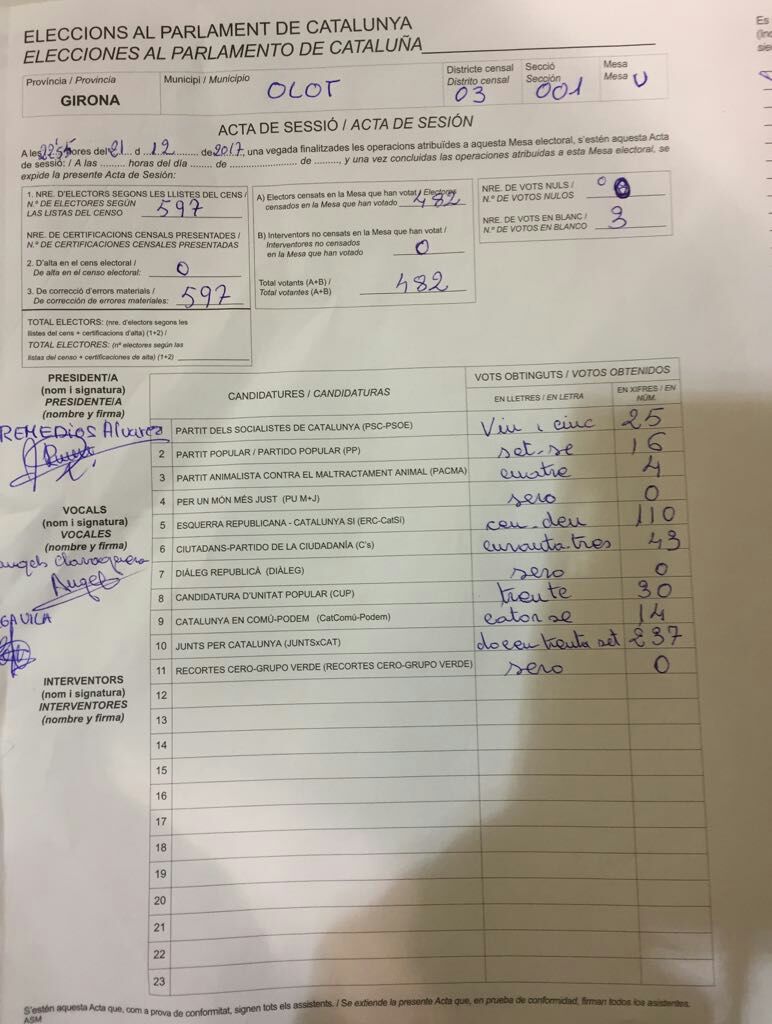 ELECCIONS AL PARLAMENT DE CATALUNYA
ELECCIONES AL PARLAMENTO DE CATALUÑA
Província / Provincia
GIRONA
Municipi / Municipio
OLOT
Districte censal
Distrito censal
03
Secció
Sección
001
Mesa
Mesa U
ACTA DE SESSIÓ / ACTA DE SESIÓN
A les 22'55 hores del 21 d 12 de 2017, una vegada finalitzades les operacions atribuïdes a aquesta Mesa electoral, s'estén aquesta Acta
de sessió: / A las ......... horas del día ....... de ....................... de ........., y una vez concluidas las operaciones atribuidas a esta Mesa electoral, se
expide la presente Acta de Sesión:
1. NRE. D'ELECTORS SEGONS LES LLISTES DEL CENS /
N.º DE ELECTORES SEGÚN
LAS LISTAS DEL CENSO 597
NRE. DE CERTIFICACIONS CENSALS PRESENTADES /
N.º DE CERTIFICACIONES CENSALES PRESENTADAS
2. D'alta en el cens electoral /
De alta en el censo electoral: 0
3. De correcció d'errors materials /
De corrección de errores materiales: 597
TOTAL ELECTORS: (nre. d'electors segons les
llistes del cens + certificacions d'alta) (1+2) /
TOTAL ELECTORES: (nº electores según las
listas del censo + certificaciones de alta) (1+2)
A) Electors censats en la Mesa que han votat / Electores
censados en la Mesa que han votado 482
B) Interventors no censats en la Mesa que han votat /
Interventores no censados
en la Mesa que han votado 0
Total votants (A+B) /
Total votantes (A+B) 482
NRE. DE VOTS NULS /
N.º DE VOTOS NULOS 0
NRE. DE VOTS EN BLANC /
N.º DE VOTOS EN BLANCO 3
PRESIDENT/A
(nom i signatura)
PRESIDENTE/A
(nombre y firma)
REMEDIOS Alvarez
VOCALS
(nom i signatura)
VOCALES
(nombre y firma)
Angel
GAVILA
INTERVENTORS
(nom i signatura)
INTERVENTORES
(nombre y firma)
CANDIDATURES / CANDIDATURAS
VOTS OBTINGUTS / VOTOS OBTENIDOS
EN LLETRES / EN LETRA
EN XIFRES / EN NÚM.
1 PARTIT DELS SOCIALISTES DE CATALUNYA (PSC-PSOE) Vin i cinc 25
2 PARTIT POPULAR / PARTIDO POPULAR (PP) set-se 16
3 PARTIT ANIMALISTA CONTRA EL MALTRACTAMENT ANIMAL (PACMA) cuatre 4
4 PER UN MÓN MÉS JUST (PU M+J) sero 0
5 ESQUERRA REPUBLICANA - CATALUNYA SI (ERC-CatSí) cen-deu 110
6 CIUTADANS-PARTIDO DE LA CIUDADANÍA (C's) curanta-tres 43
7 DIÀLEG REPUBLICÀ (DIÀLEG) sero 0
8 CANDIDATURA D'UNITAT POPULAR (CUP) trente 30
9 CATALUNYA EN COMÚ-PODEM (CatComú-Podem) catorse 14
10 JUNTS PER CATALUNYA (JUNTSxCAT) docen trenta set 237
11 RECORTES CERO-GRUPO VERDE (RECORTES CERO-GRUPO VERDE) sero 0
12
13
14
15
16
17
18
19
20
21
22
23
S'estén aquesta Acta que, com a prova de conformitat, signen tots els assistents. / Se extiende la presente Acta que, en prueba de conformidad, firman todos los asistentes.
ASM
Es